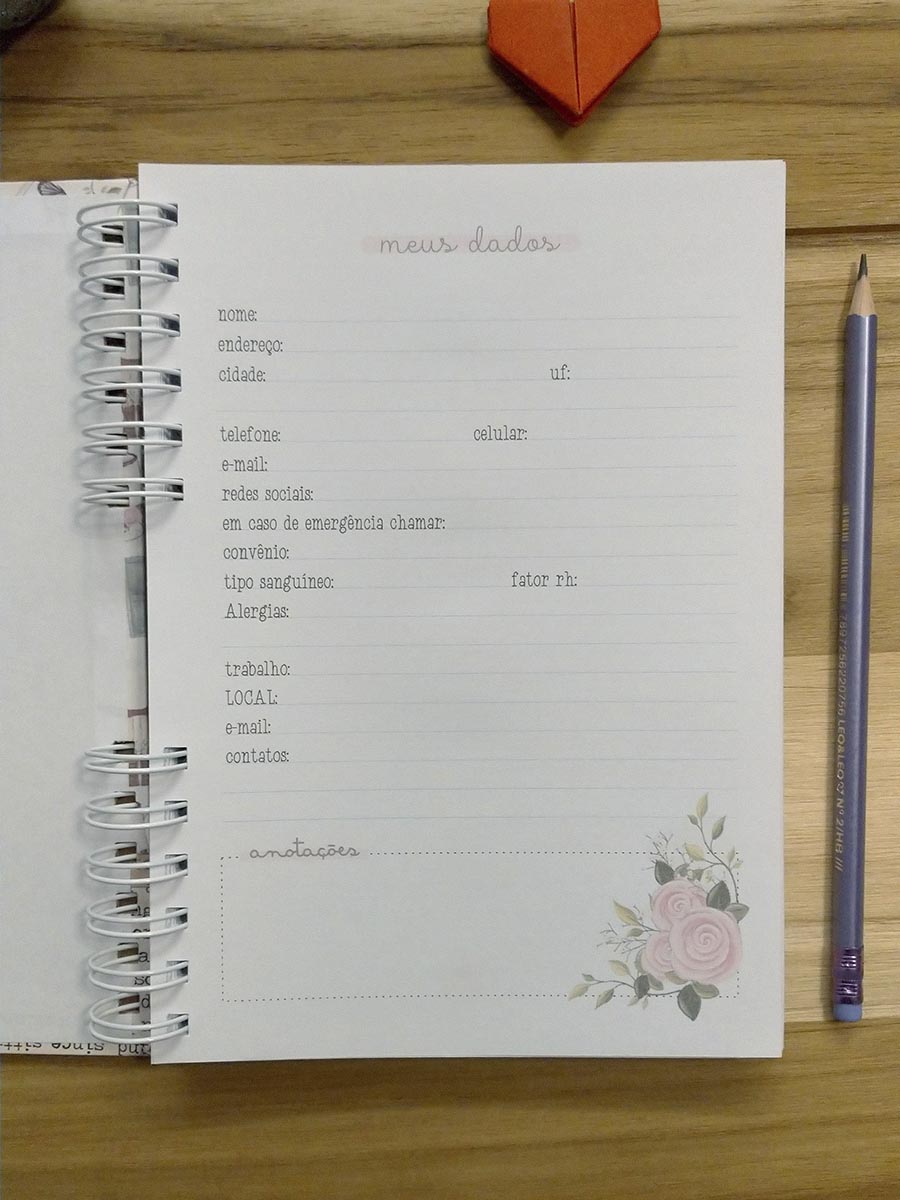 meus dados
nome:
endereço:
cidade: uf:
telefone: celular:
e-mail:
redes sociais:
em caso de emergência chamar:
convênio:
tipo sanguíneo: fator rh:
Alergias:
trabalho:
LOCAL:
e-mail:
contatos:
anotações
7897256220756 LEO&LEO Nº 2/HB ///